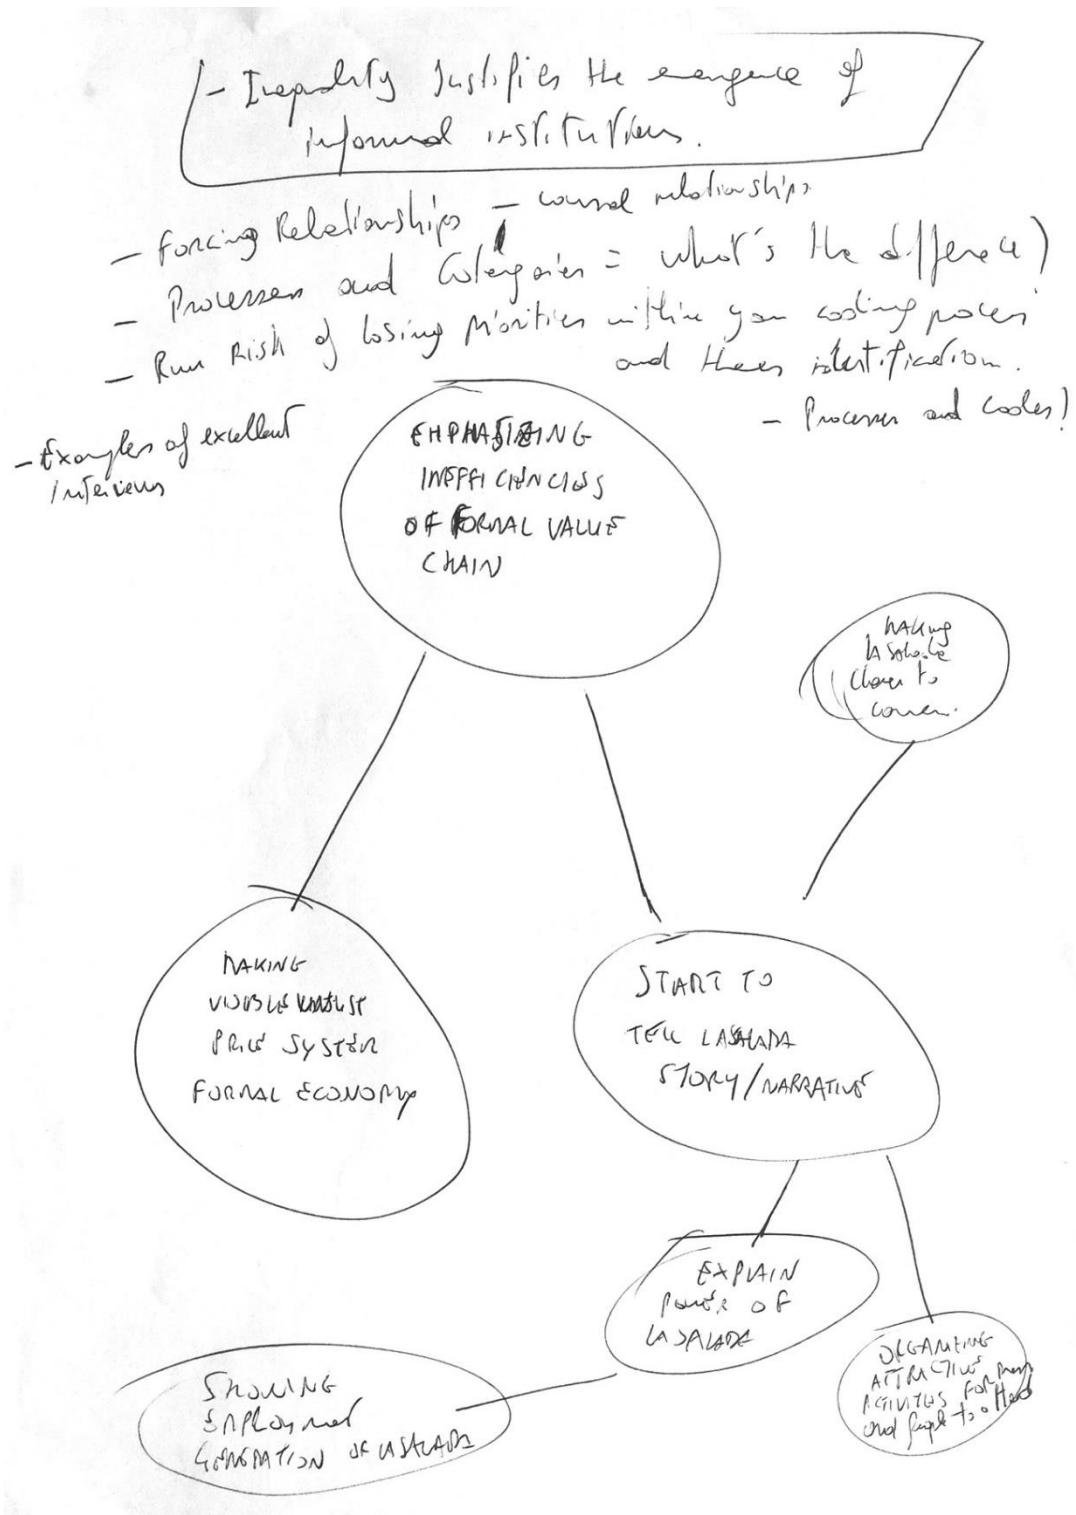 - Inequality Justifies the emergence of
informal institutions.
- Forcing Relationships - causal relationships
- Processes and Categories = what's the difference?
- Run Risk of losing priorities within your coding process
and theme identification.
- Processes and codes?
- Examples of excellent
Interviews
EMPHASIZING
INEFFICIENCIES
OF FORMAL VALUE
CHAIN
MAKING
LaSalada
closer to
MAKING
VISIBLE UNJUST
PRICE SYSTEM
FORMAL ECONOMY
START TO
TELL LASALADA
STORY/NARRATIVE
EXPLAIN
POWER OF
LA SALADA
ORGANIZING
ATTRACTIVE
ACTIVITIES FOR
and people to attend
SHOWING
EMPLOYMENT
GENERATION OF LASALADA